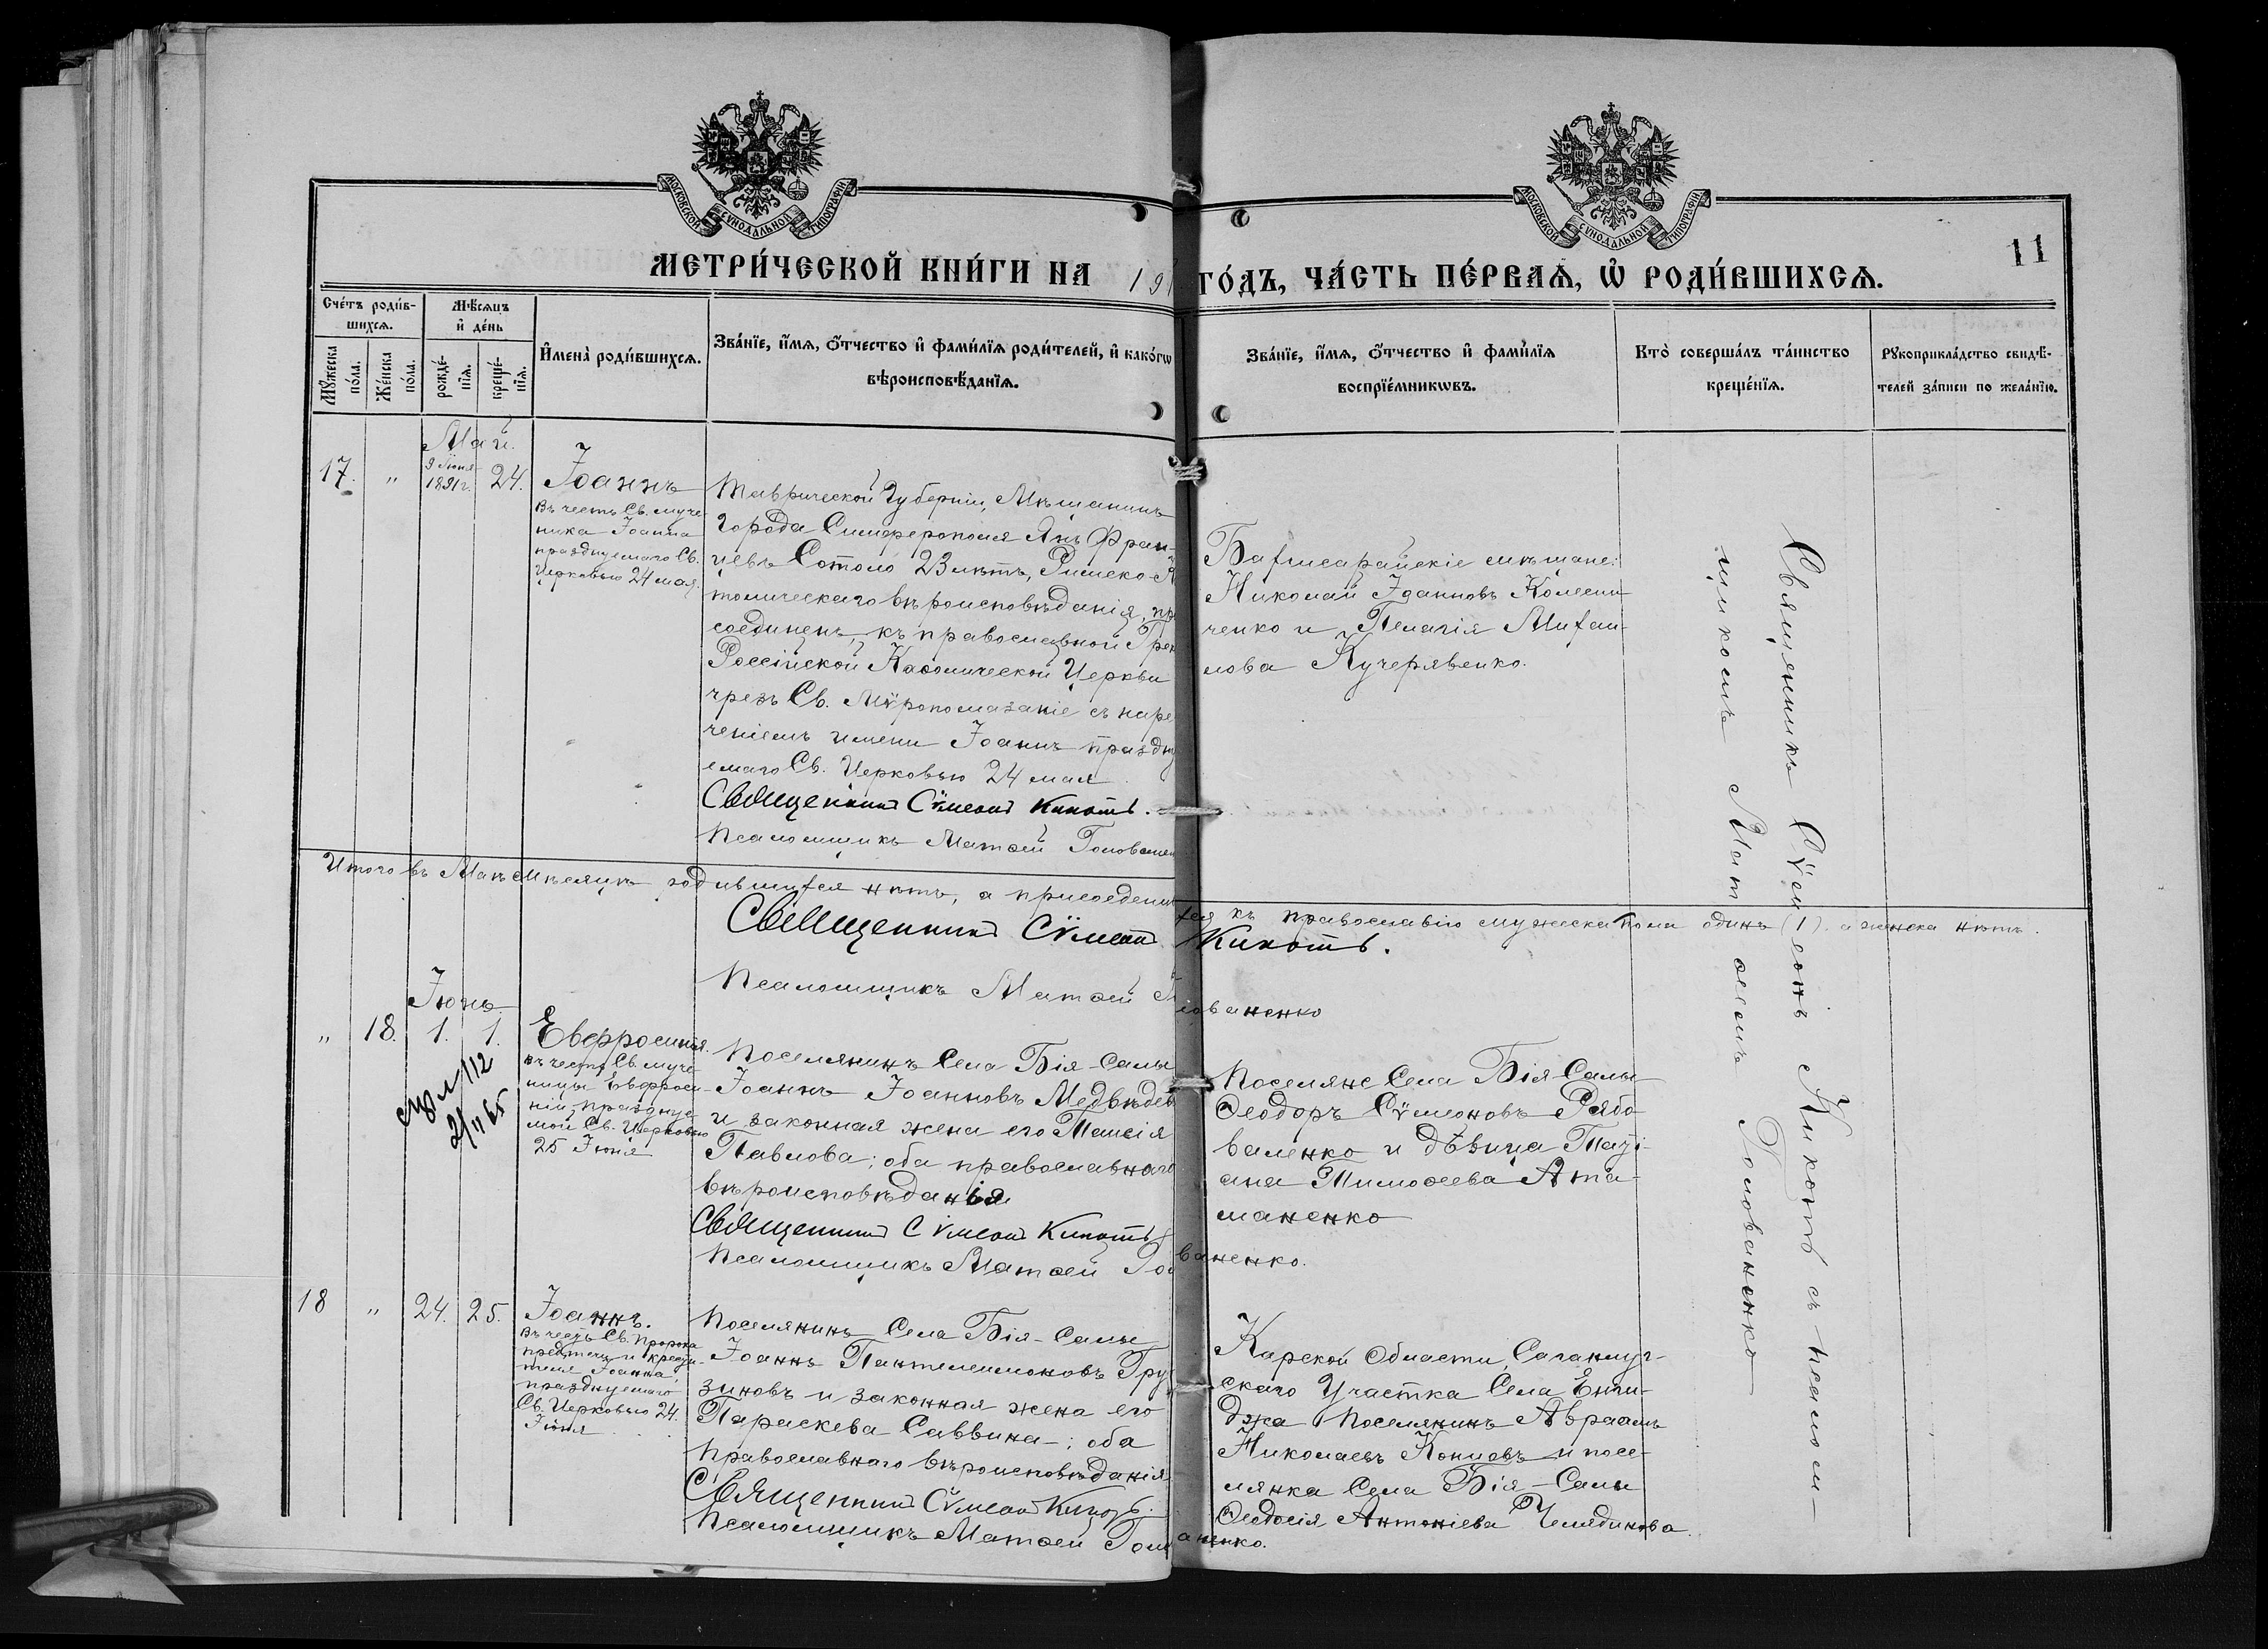 МОСКОВСКОЙ СѴНОДАЛЬНОЙ ТИПОГРАФІИ
МОСКОВСКОЙ СѴНОДАЛЬНОЙ ТИПОГРАФІИ
11
МЕТРИ́ЧЕСКОЙ КНИ́ГИ НА 191 ГО́ДЪ, ЧА́СТЬ ПЕ́РВАѦ, Ѡ҆ РОДИ́ВШИХСѦ.
Сче́тъ роди́в-
шихсѧ.
Мꙋ́жеска
по́ла.
Же́нска
по́ла.
Мѣ́сѧцъ
и҆ де́нь
рожде́-
нїѧ.
креще́-
нїѧ.
И҆мена̀ роди́вшихсѧ.
Зва́нїе, и҆́мѧ, ѻ҆́тчество и҆ фами́лїѧ роди́телей, и҆ како́гѡ
вѣроисповѣ́данїѧ.
Зва́нїе, и҆́мѧ, ѻ҆́тчество и҆ фами́лїѧ
воспрїе́мникѡвъ.
Кто̀ соверша́лъ та́инство
креще́нїѧ.
Рꙋкоприкла́дство свидѣ́-
телей за́писи по жела́нїю.
Май.
17. „ 9 Іюня 1891 г. 24.
Іоаннъ
Въ честь Св. муче
ника Іоанна
празднуемаго Св.
Церковью 24 мая.
Таврической Губерніи, Мѣщанинъ
Города Симферополя Янъ Фран-
цевъ Сотоло 23 лѣтъ, Римско-К
толическаго вѣроисповѣданія, пр
соединенъ къ православной Грек
Россійской Каѳолической Церкви
чрезъ Св. Мѵропомазаніе съ наре
ченіемъ имени Іоаннъ праздну
емаго Св. Церковью 24 мая
Священникъ Сѵмеонъ Кикоть.
Псаломщикъ Матѳей Голованен
Бахчисарайскіе мѣщане:
Николай Іоанновъ Колесни-
ченко и Пелагія Михаи-
лова Кучерявенко.
Священникъ Сѵмеонъ Кикоть съ псалом-
щикомъ Матѳеемъ Голованенко
Итого въ Маѣ мѣсяцѣ родившихся нѣтъ, а присоединив
хся къ православію мужска пола одинъ (1) а женска нѣтъ.
Священникъ Сѵмеонъ Кикоть.
Псаломщикъ Матѳей Голованенко
Іюнь
„ 18. 1. 1.
Евфросинія.
Въ честь Св. муче
ницы Евфроси-
ніи, празднуе
мой Св. Церковью
25 Іюня
Поселянинъ Села Бія-Салы
Іоаннъ Іоанновъ Медвѣдев
и законная жена его Таисія
Павлова; оба православнаго
вѣроисповѣданія
Священникъ Сѵмеонъ Кикоть
Псаломщикъ Матѳей Голованенко.
Поселяне Села Бія-Салы
Ѳеодоръ Сѵмеоновъ Рябо
валенко и дѣвица Таті-
ана Тимоѳеева Ата-
маненко
18 „ 24. 25.
Іоаннъ.
Въ честь Св. Пророка
предтечи и крести-
теля Іоанна,
празднуемаго
Св. Церковью 24.
Іюня
Поселянинъ Села Бія-Салы
Іоаннъ Пантелеимоновъ Гру
зиновъ и законная жена его
Параскева Саввина; оба
Православнаго вѣроисповѣданія
Священникъ Сѵмеонъ Кикоть.
Псаломщикъ Матѳей Голованенко.
Карской Области,
скаго Участка Села Енги-
джа Поселянинъ Авраамъ
Николаевъ Копцовъ и посе-
лянка Села Бія-Салы
Ѳеодосія Антоніева Челядинова.